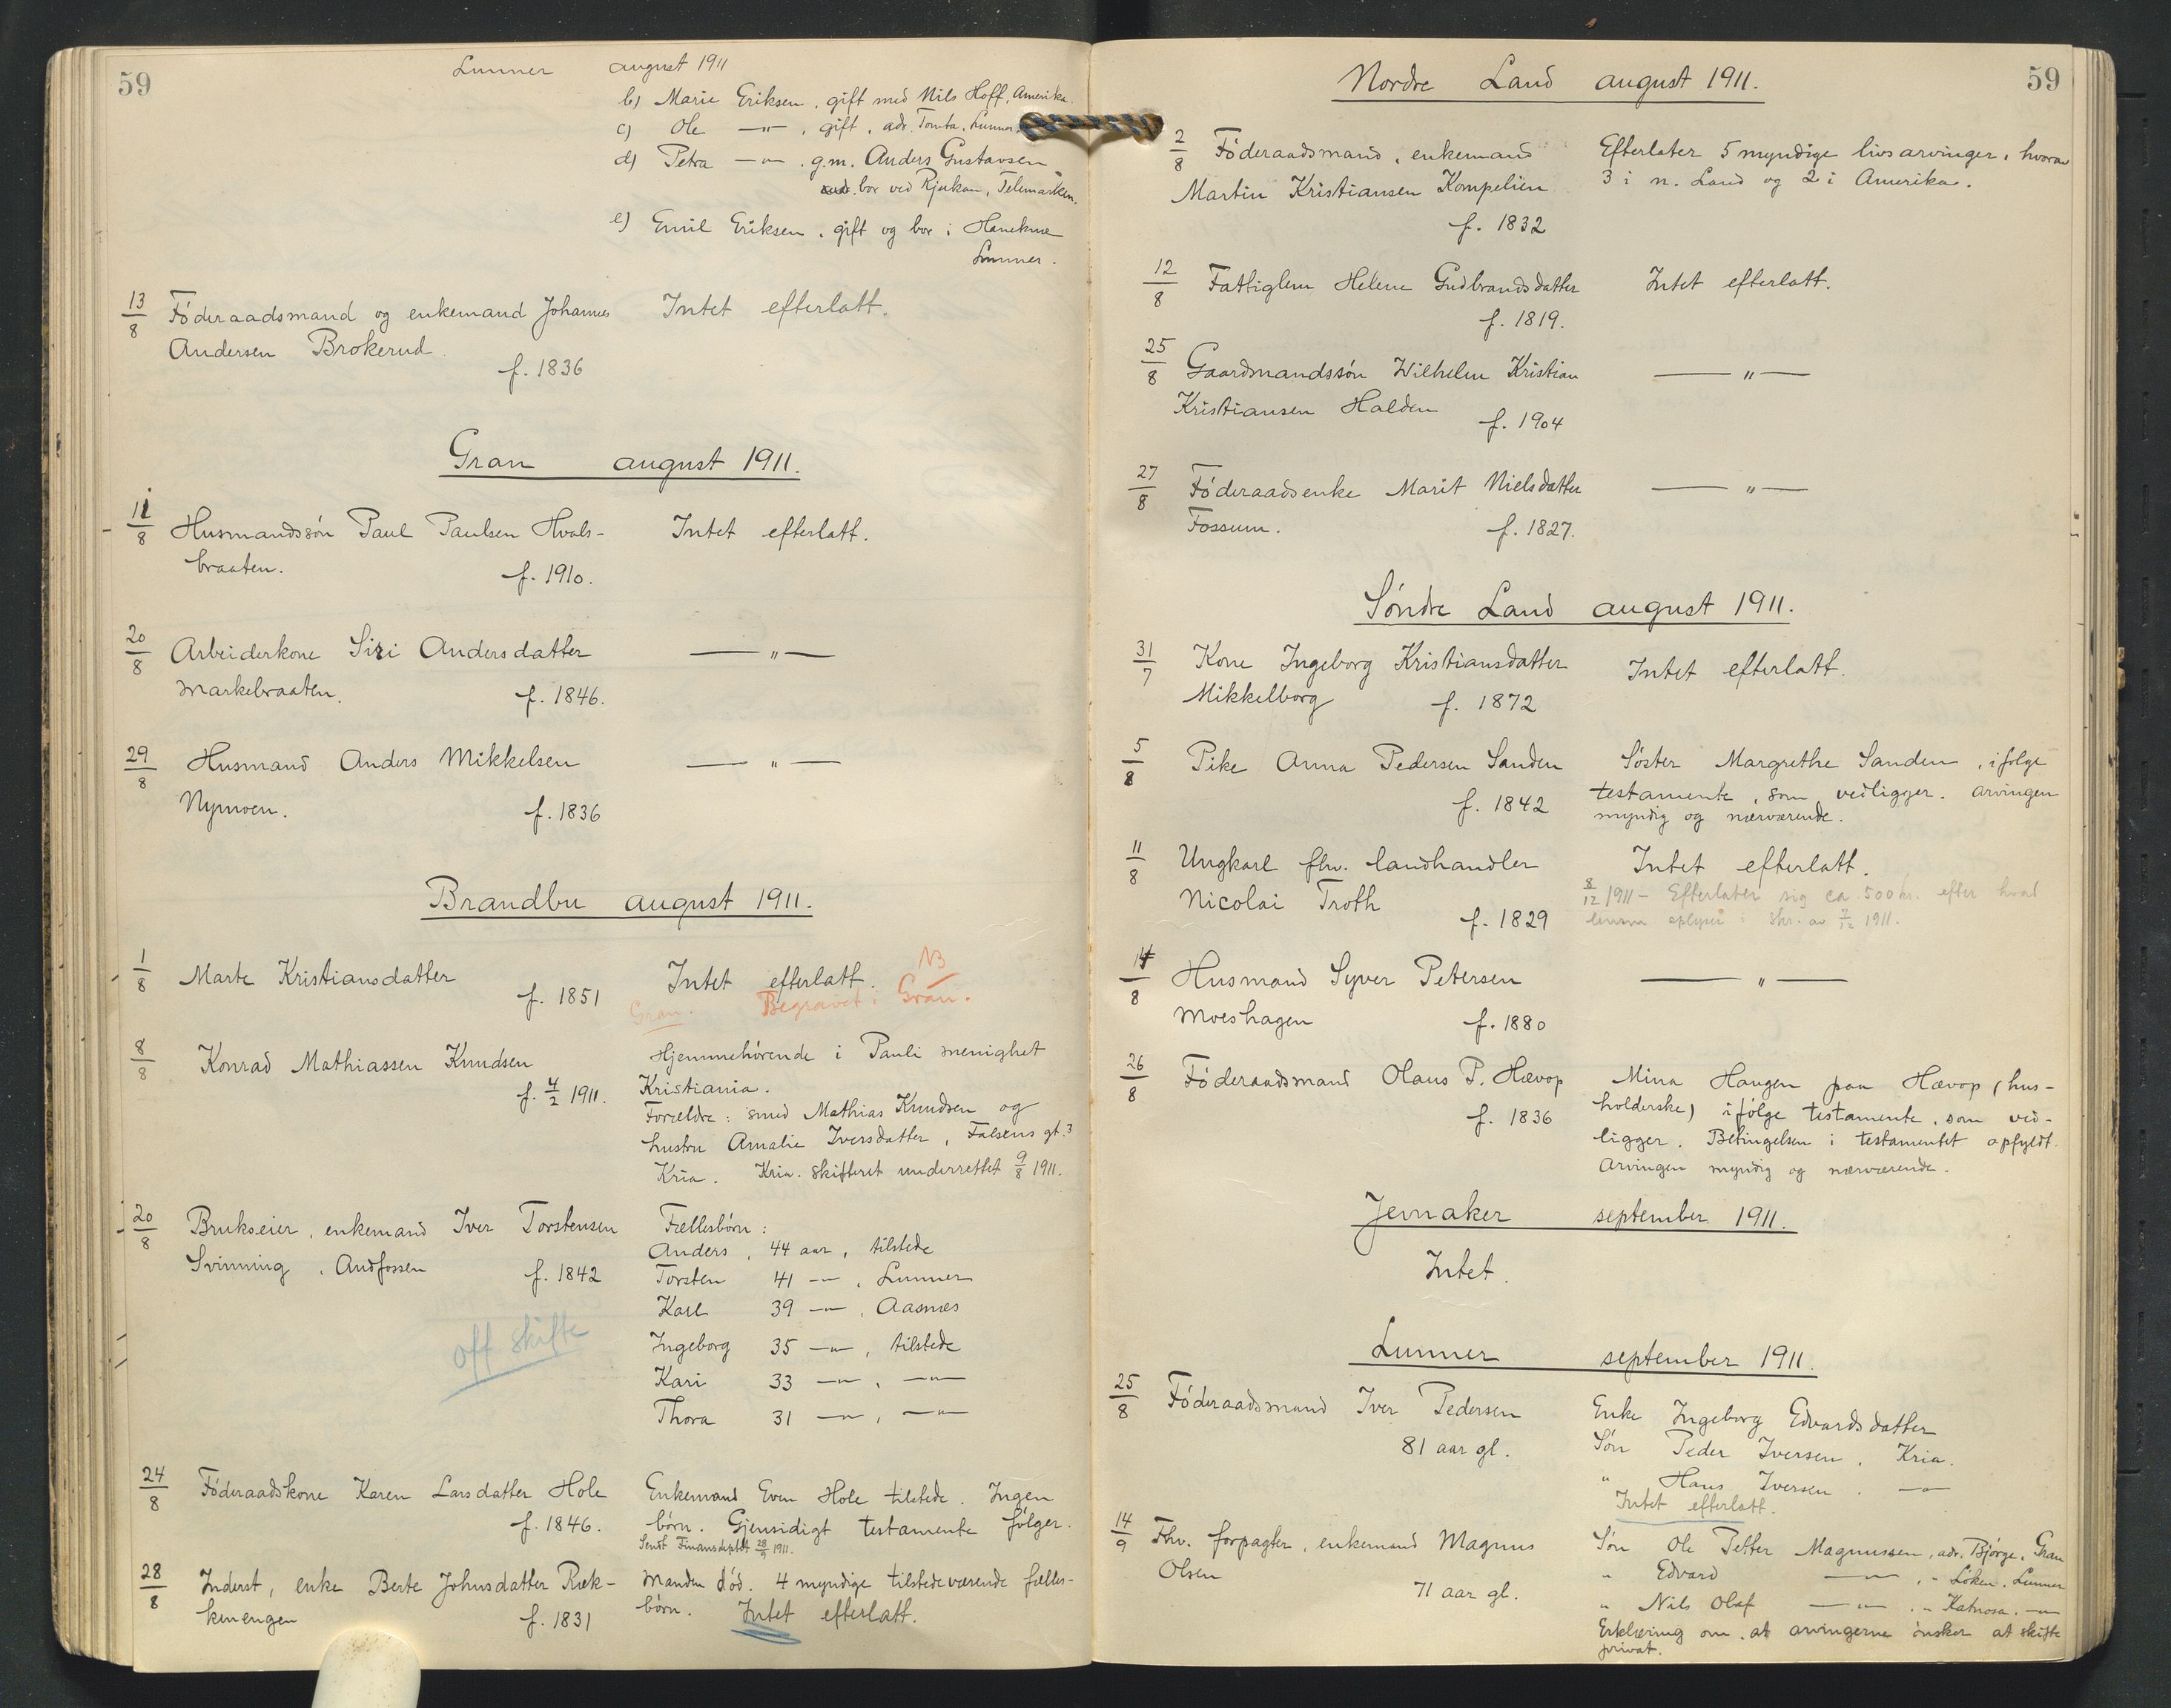 59
Lunner august 1911
b) Marie Eriksen, gift med Nils Hoff, Amerika.
c) Ole —"— , gift, adr. Tomta, Lunner.
d) Petra —"— . g.m. Anders Gustavsen
bor ved Rjukan, Telemarken.
e) Emil Eriksen, gift og bor i
Lunner.
13/8 Föderaadsmand og enkemand Johannes Intet efterlatt.
Andersen Brokerud
f. 1836
Gran august 1911.
11/8 Husmandssön Paul Paulsen Hvals- Intet efterlatt.
braaten. f. 1910.
20/8 Arbeiderkone Siri Andersdatter —"—
Markebraaten. f. 1846.
29/8 Husmand Anders Mikkelsen —"—
Nymoen. f. 1836
Brandbu august 1911.
1/8 Marte Kristiansdatter Intet efterlatt. NB
f. 1851 Gran. Begravet i Gran.
8/8 Konrad Mathiassen Knudsen Hjemmehörende i Pauli menighet
f. 4/2 1911. Kristiania.
Forældre: smed Mathias Knudsen og
hustru Amalie Iversdatter, Falsens gt. 3
Kria. Kria. skifteret underrettet 9/8 1911.
20/8 Brukseier, enkemand Iver Torstensen Fællesbörn:
Svinning, Andfossen f. 1842 Anders, 44 aar, tilstede
Torsten 41 —"—, Lunner
Karl 39 —"—, Aasnes
off skifte Ingeborg 35 —"—, tilstede
Kari 33 —"—, —"—
Thora 31 —"—, —"—
24/8 Föderaadskone Karen Larsdatter Hole Enkemand Even Hole tilstede. Ingen
f. 1846. börn. Gjensidigt testamente fölger.
Sendt Finansdeptet 28/9 1911.
28/8 Inderst, enke Berte Johnsdatter Ræk- Manden död. 4 myndige tilstedeværende fælles-
kenengen f. 1831 börn. Intet efterlatt.
59
Nordre Land august 1911.
2/8 Föderaadsmand, enkemand Efterlater 5 myndige livsarvinger, hvorav
Martin Kristiansen Kompelien 3 i n. Land og 2 i Amerika.
f. 1832
12/8 Fattiglem Helene Gudbrandsdatter Intet efterlatt.
f. 1819.
25/8 Gaardmandssön Wilhelm Kristian —"—
Kristiansen Halden f. 1904
27/8 Föderaadsenke Marit Nielsdatter —"—
Fossum. f. 1827.
Söndre Land august 1911.
31/7 Kone Ingeborg Kristiansdatter Intet efterlatt.
Mikkelborg f. 1872
5/8 Pike Anna Pedersen Sanden Söster Margrethe Sanden, ifölge
f. 1842 testamente, som vedligger. Arvingen
myndig og nærværende.
11/8 Ungkarl fhv. landhandler Intet efterlatt.
Nicolai Troth f. 1829 8/12 1911 – Efterlater sig ca 500 kr. efter hvad
i skr. av 7/12 1911.
14/8 Husmand Syver Petersen —"—
Moeshagen f. 1880
26/8 Föderaadsmand Olaus P. Hævop Mina Haugen paa Hævop (hus-
f. 1836 holderske) ifölge testamente, som ved-
ligger. Betingelsen i testamentet opfyldt.
Arvingen myndig og nærværende.
Jevnaker september 1911.
Intet.
Lunner september 1911.
25/8 Föderaadsmand Iver Pedersen Enke Ingeborg Edvardsdatter
81 aar gl. Sön Peder Iversen, Kria.
" Hans Iversen. —"—
Intet efterlatt.
14/9 Fhv. forpagter, enkemand Magnus Sön Ole Petter Magnussen, adr. Bjørge, Gran
Olsen " Edvard —"— , " Löken, Lunner
71 aar gl. " Nils Olaf —"— , " Katnosa, —"—
Erklæring om, at arvingerne önsker at skifte
privat.